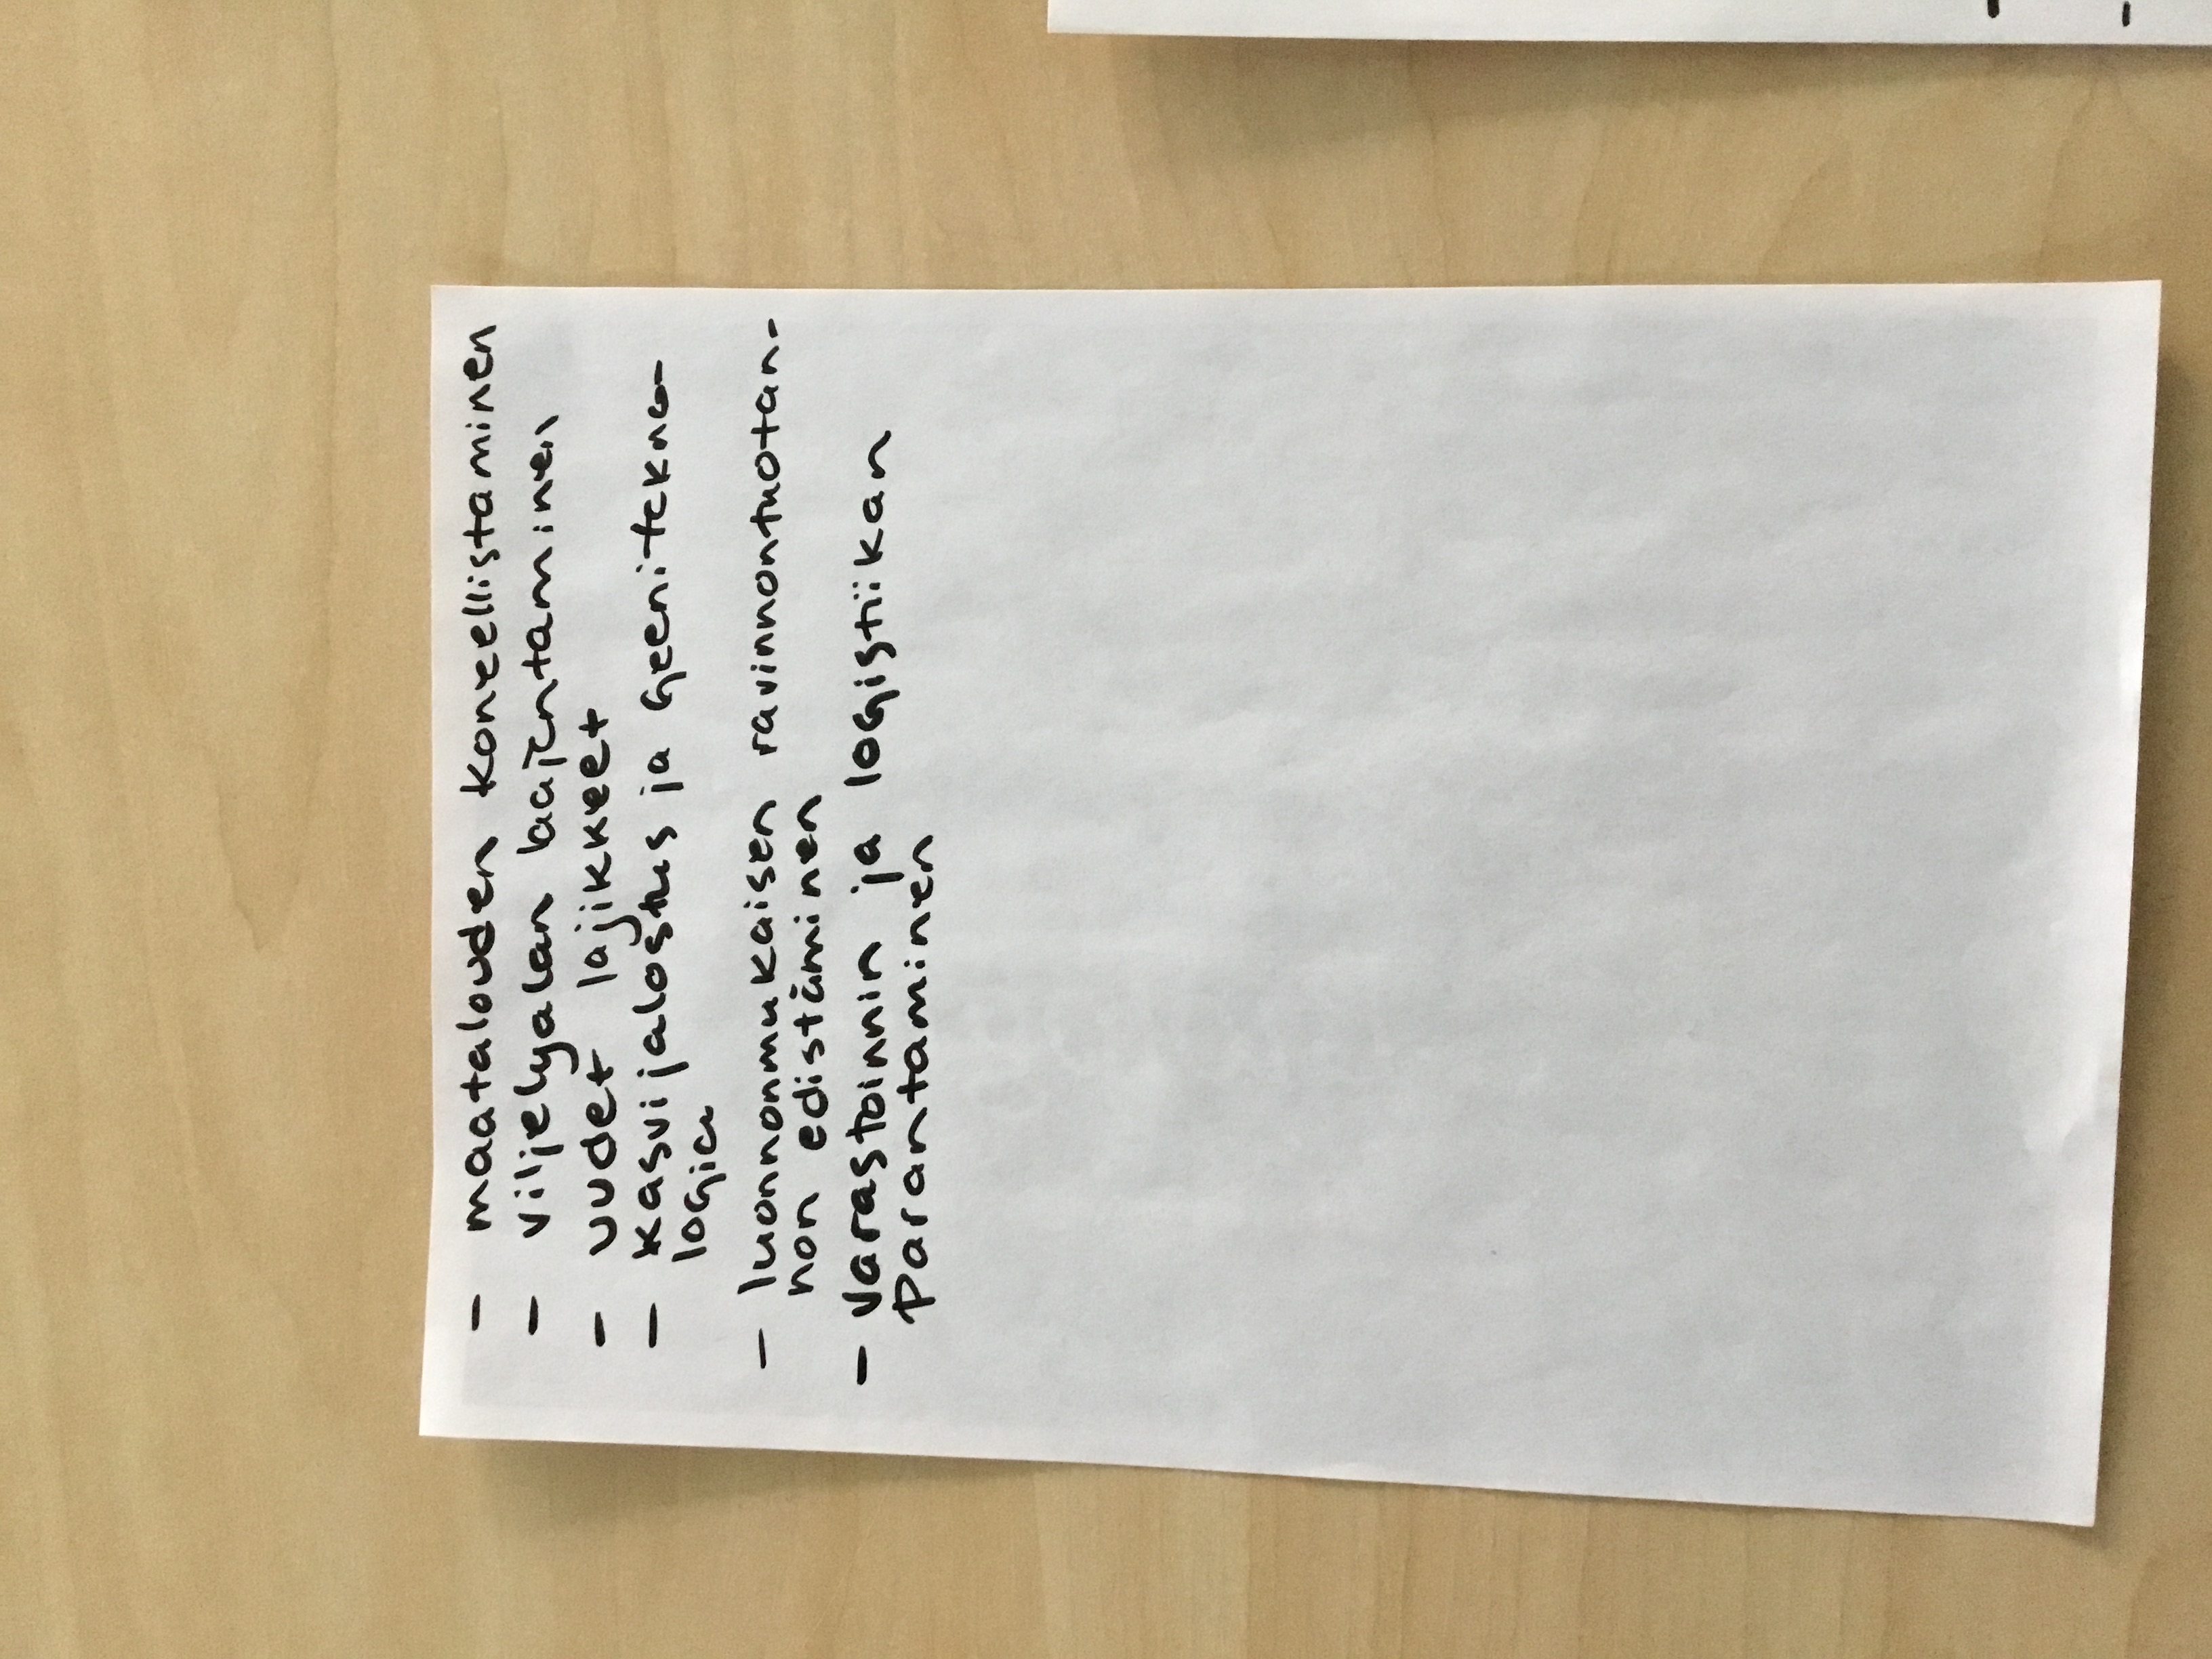 - maatalouden koneellistaminen
- viljelyalan laajentaminen
- uudet lajikkeet
- kasvijalostus ja geenitekno-
logia
- luonnonmukaisen ravinnontuotan-
non edistäminen
- varastoinnin ja logistiikan
parantaminen